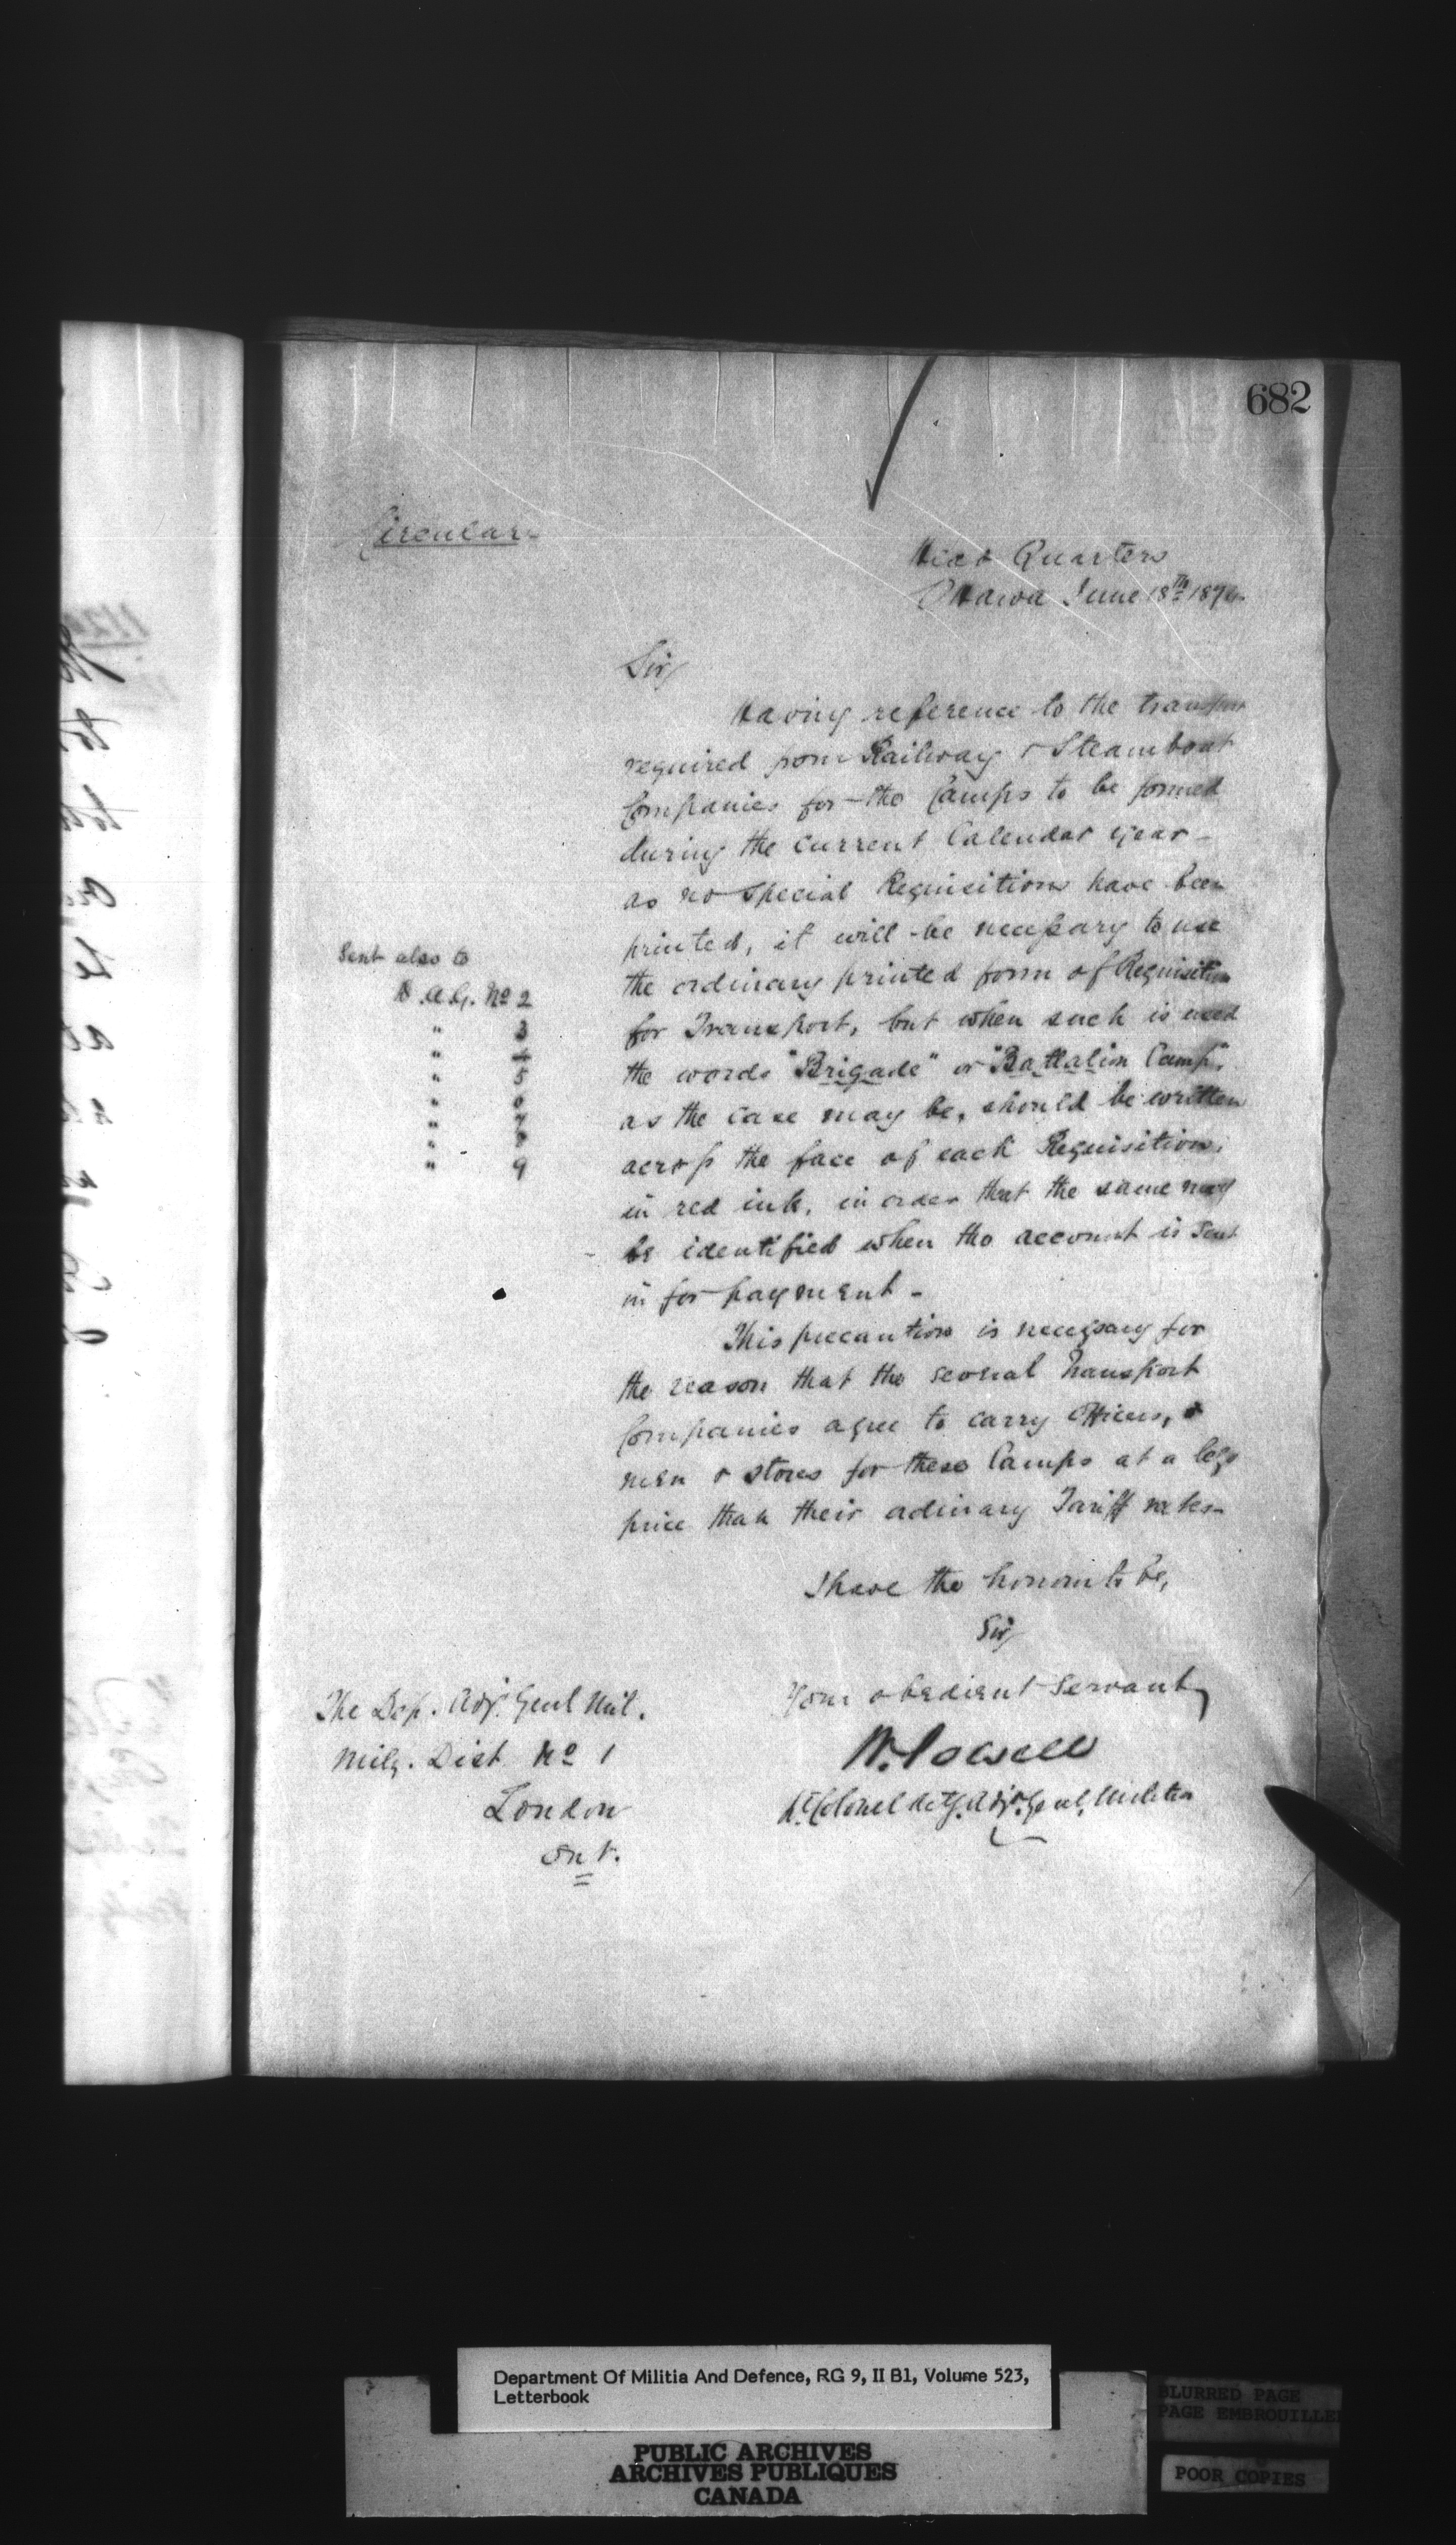 682
Circular.
Head Quarters
Ottawa June 18th
Sir,
Having reference to the transport
required from Railway & Steamboat
Companies for the Camps to be formed
during the current Calendar year -
as no special Requisitions have been
printed, it will be necessary to use
the ordinary printed form of Requisition
for Transport, but when such is used
the words "Brigade" or "Battalion Camp",
as the case may be, should be written
across the face of each Requisition,
in red ink, in order that the same may
be identified when the account is sent
in for payment -
This precaution is necessary for
the reason that the several Transport
Companies agree to carry Officers, &
men & stores for these Camps at a less
price than their ordinary Tariff rates.
Sent also to
D.A.G. No 2
" 3
" 4
" 5
" 6
" 7
" 8
" 9
I have the honour to be,
Sir,
Your obedient Servant,
W. Powell
Lt. Colonel Actg. Adjt. Genl. Militia
The Dep. Adj. Genl Mil.
Mily. Dist No 1
London
Ont.
Department Of Militia And Defence, RG 9, II B1, Volume 523,
Letterbook
PUBLIC ARCHIVES
ARCHIVES PUBLIQUES
CANADA
BLURRED PAGE
PAGE EMBROUILLEE
POOR COPIES